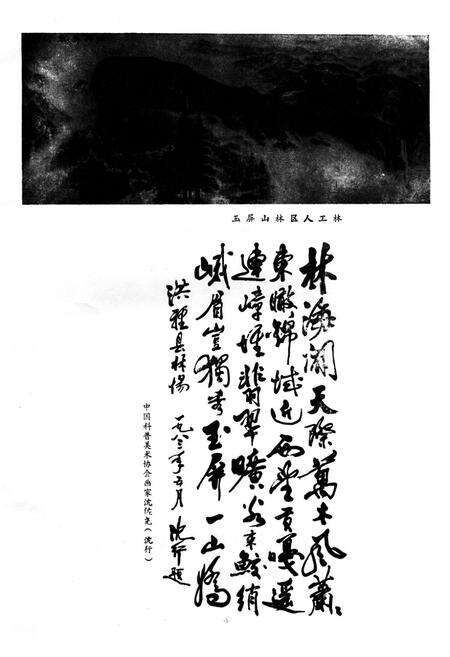 玉屏山林区人工林
林海闊天際萬木风蕭々
東瞰錦城近西望貢嘎遥
連嶂堆翡翠曠谷束鲛绡
峨眉豈獨秀玉屏一山嬌
洪雅县林場 一九八三年五月 沈行题
中国科普美术协会画家沈佐尧(沈行)